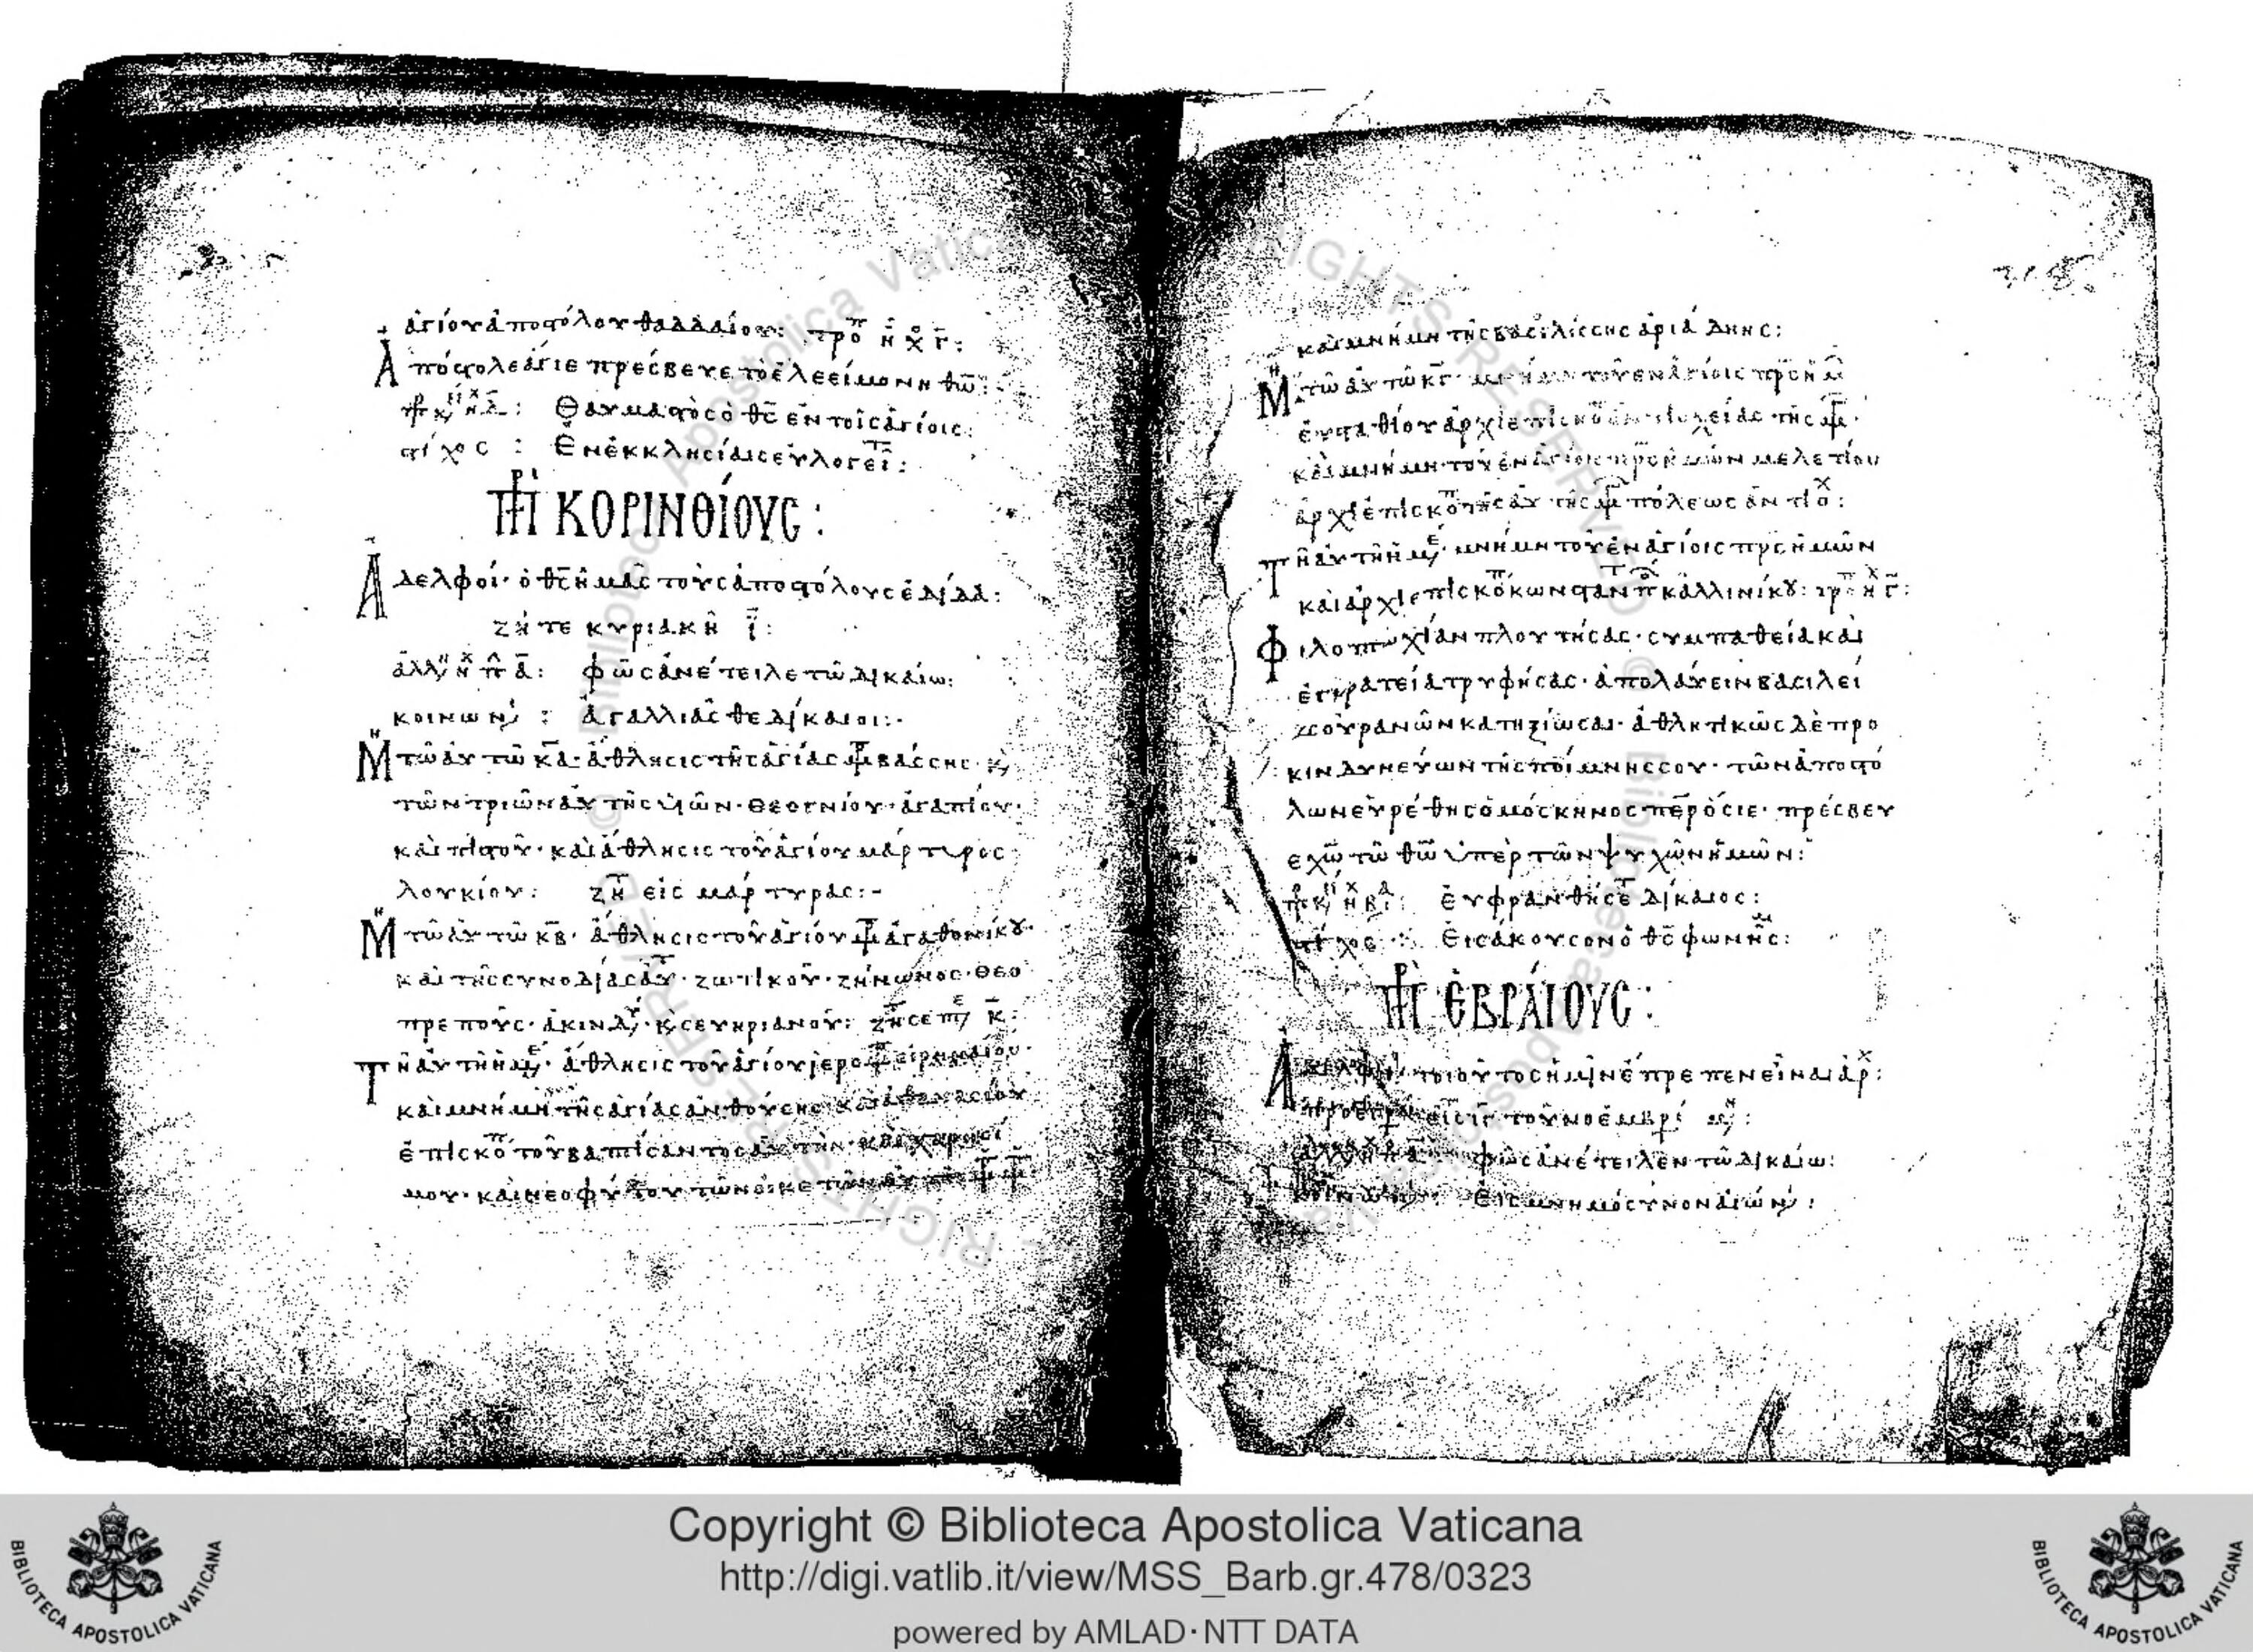 ἁγίου ἀποστόλου θαδδαίου: τρο π ἦχ γ:
Ἀπόστολε ἅγιε πρέσβευε τὸ ἐλεείμονη θω:
Θαυμαστὸς ὁ θς ἐν τοῖς ἁγίοις:
στίχος : Ἐν ἐκκλησίαις εὐλογεῖτ:
ΠΡ ΚΟΡΙΝΘΙΟΥΣ:
Ἀδελφοί· ὁ θς ἡμᾶς τοὺς ἀποστόλους ἔδ
ζήτε κυριακῆ ι:
ἀλλη ἦχ πα: φῶς ἀνέτειλε τῶ δικαίω:
κοινων : ἀγαλλιᾶσθε δίκαιοι:-
Μη τῶ αὐτῶ κα· ἄθλησις τῆς ἁγίας μρ βάσσης· κ
τῶν τριῶν αὐτῆς υἱῶν· θεογνίου· ἀγαπίου·
καὶ πιστοῦ· καὶ ἄθλησις τοῦ ἁγίου μάρτυρος
λουκίου: ζητ εἰς μάρτυρας:-
Μη τῶ αὐτῶ κβ· ἄθλησις τοῦ ἁγίου μρ ἀγαθονίκου·
καὶ τῆς συνοδίας αὐτ· ζωτικοῦ· ζήνωνος· θεο
πρεποῦς· ἀκινδ· κ σευηριανοῦ: ζητ σεπ κ:
Τῆ αὐτῆ ἡμε· ἄθλησις τοῦ ἁγίου ἱερομρ εἰρηναίου·
καὶ μνήμη τῆς ἁγίας ἀνθούσης· καὶ ἀθανασίου
ἐπισκοπ τοῦ βαπτίσαντος αὐτήν· καὶ χαρησί
μου· καὶ νεοφύτου τῶν οἰκετῶν αὐτῆς
καὶ μνήμη τῆς βασιλίσσης ἀριάδνης:
Μη τῶ αὐτῶ κγ· μνήμη τοῦ ἐν ἁγίοις πρς ἡμ
εὐσταθίου ἀρχιεπισκοπ ἀντιοχείας τῆς μρ·
καὶ μνήμη τοῦ ἐν ἁγίοις πρς ἡμῶν μελετίου
ἀρχιεπισκοπ τῆς αὐ τῆς μρ πόλεως ἀντιοχ:
Τῆ αὐτῆ ἡμε· μνήμη τοῦ ἐν ἁγίοις πρς ἡμῶν
καὶ ἀρχιεπισκοπ κωνσταντ π καλλινίκου: τρο π ἦχ γ:
Φιλοπτωχίαν πλουτήσας· συμπαθεία καὶ
ἐγκρατεία τρυφήσας· ἀπολαύειν βασιλεί
ας οὐρανῶν κατηξίωσαι· ἀθλητικῶς δὲ προ
κινδυνεύων τῆς ποίμνης σου· τῶν ἀποστό
λων εὑρέθης ὁμόσκηνος περ ὅσιε· πρέσβευ
ε χω τῶ θω ὑπὲρ τῶν ψυχῶν ἡμῶν:
εὐφρανθήσετ δίκαιος:
στίχος : Εἰσάκουσον ὁ θς φωνῆς:
ΠΡ ἙΒΡΑΙΟΥΣ:
Ἀδελφοί· τοιοῦτος ἡμῖν ἔπρεπεν εἶναι ἀρχ:
εἰς ιγ τοῦ νοεμβρί μη:
φῶς ἀνέτειλεν τῶ δικαίω:
Εἰς μνημόσυνον αἰών :
Copyright © Biblioteca Apostolica Vaticana
http://digi.vatlib.it/view/MSS_Barb.gr.478/0323
powered by AMLAD·NTT DATA
BIBLIOTECA APOSTOLICA VATICANA
BIBLIOTECA APOSTOLICA VATICANA